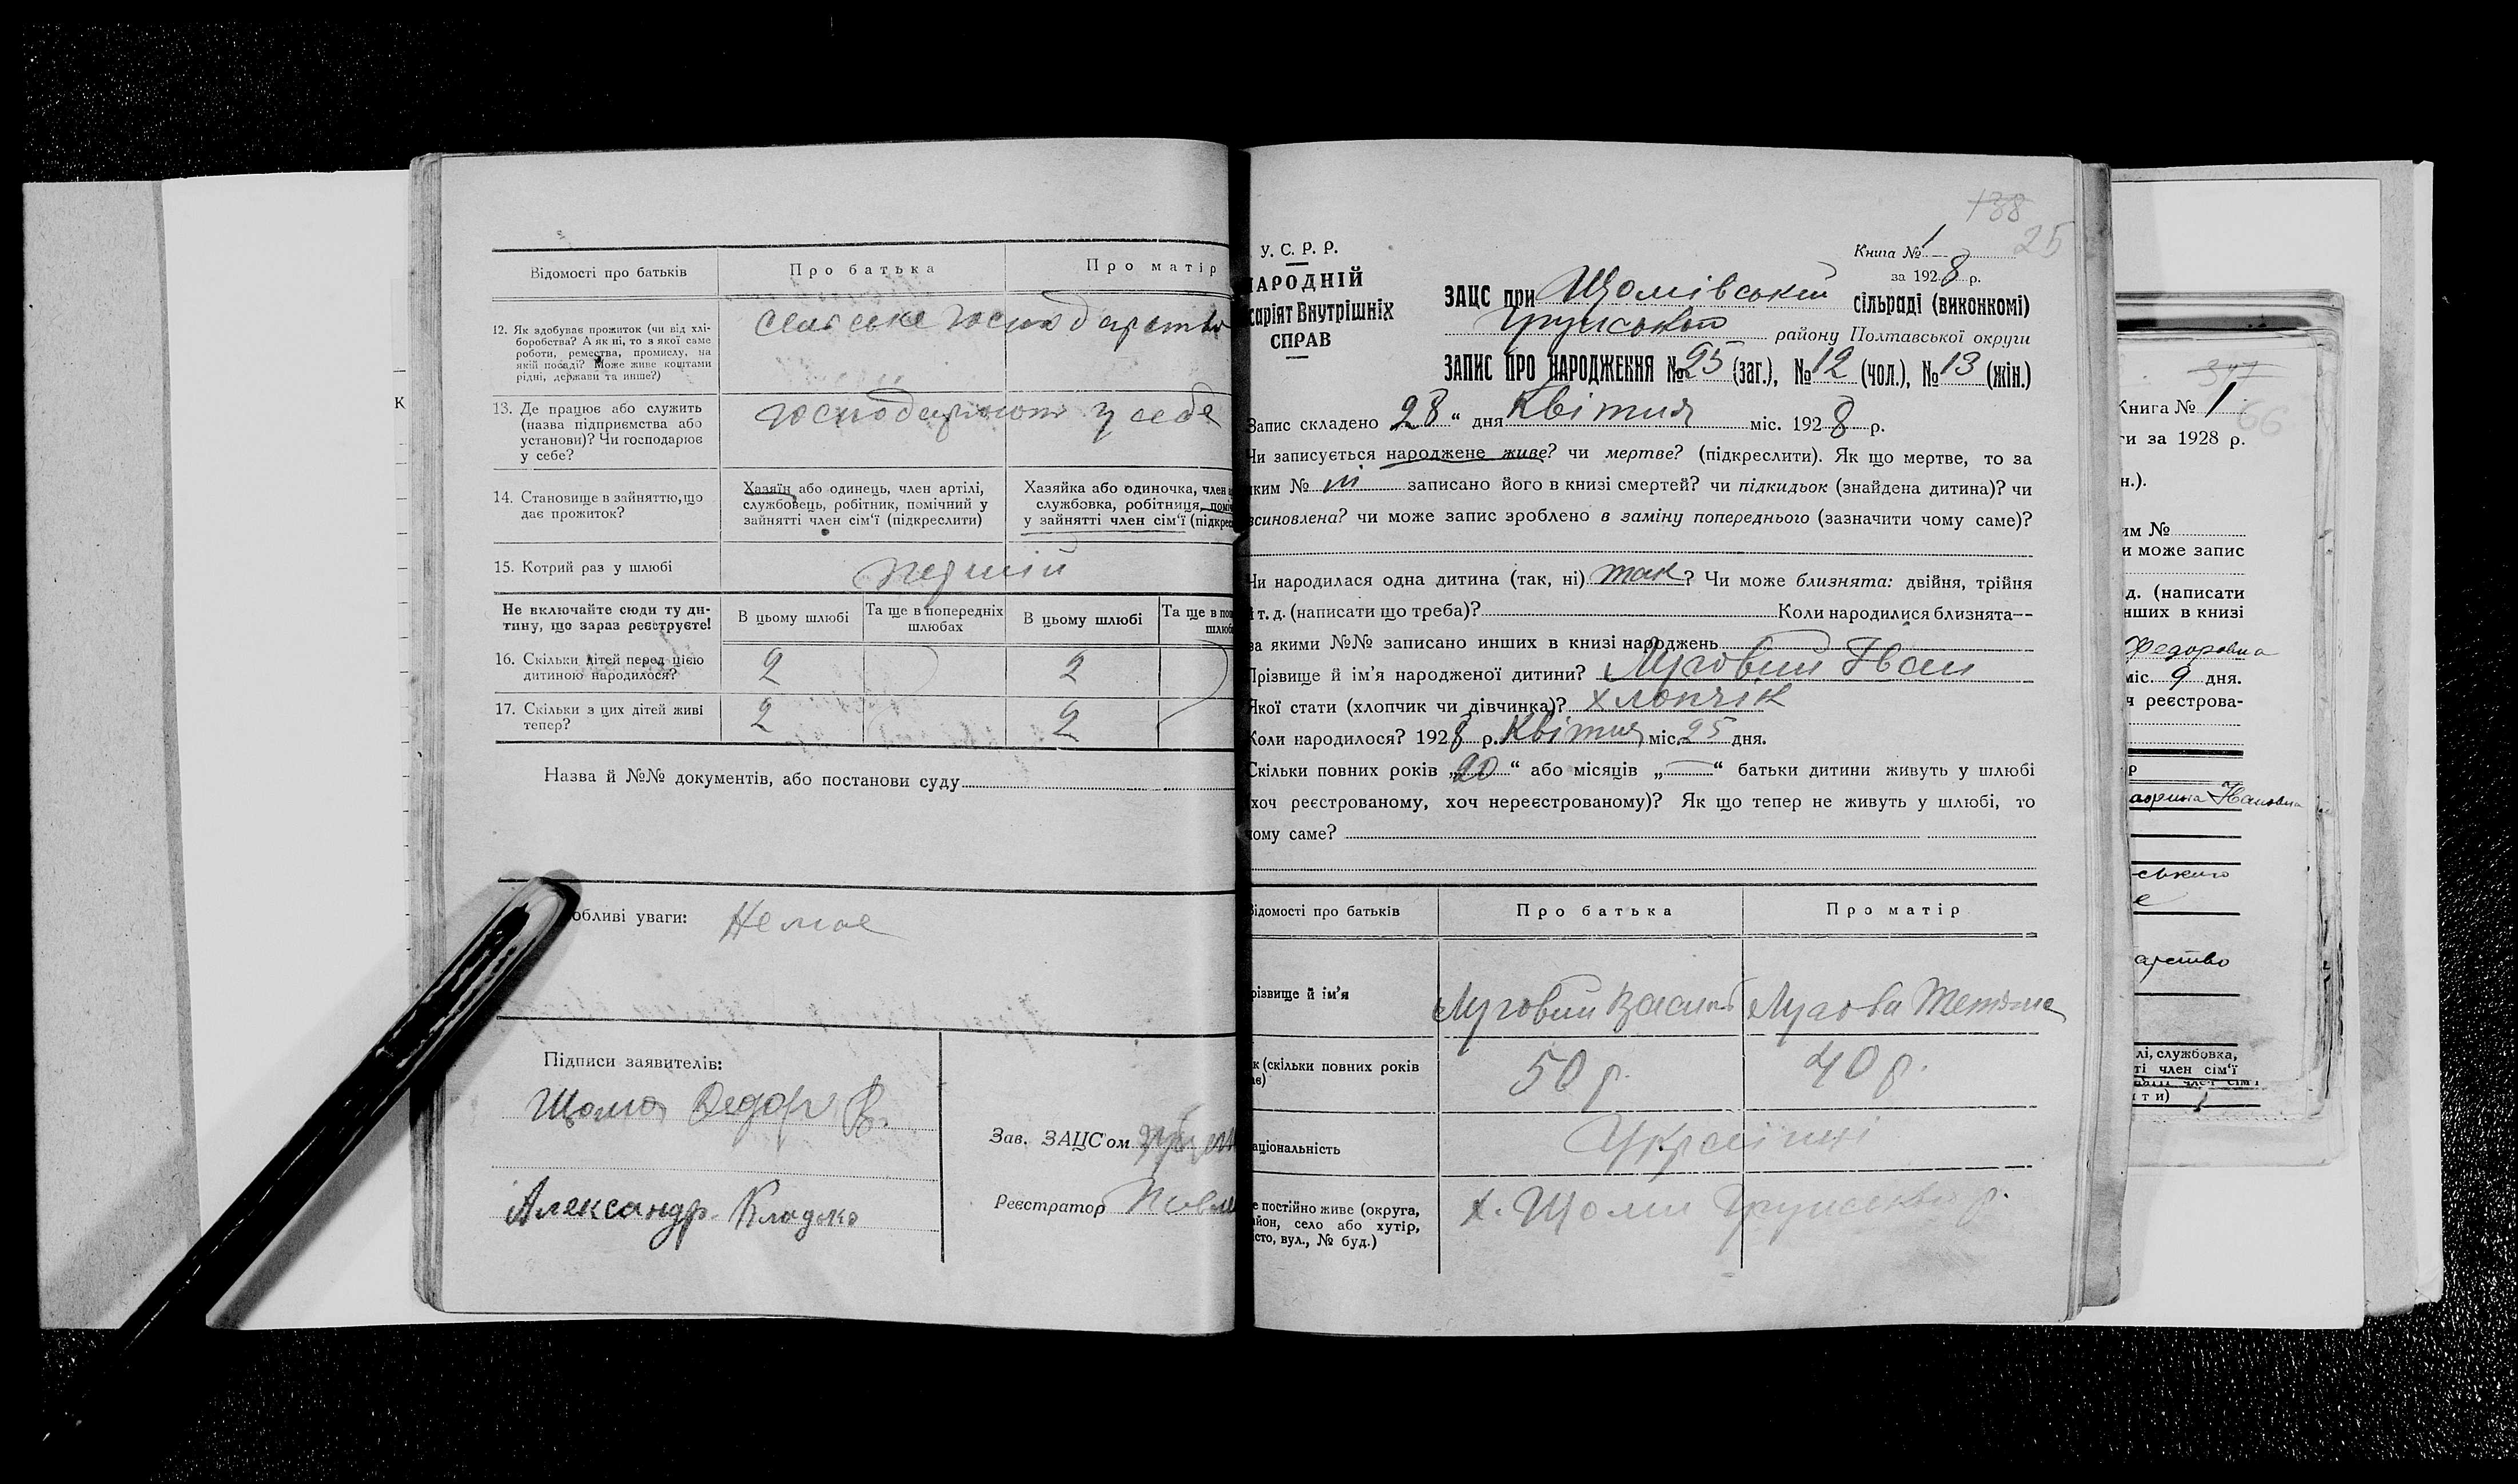 Відомості про батьків
Про батька
Про матір
12. Як здобуває прожиток (чи від хлі-
боробства? А як ні, то з якої саме
роботи, ремества, промислу, на
якій посаді? Може живе коштами
рідні, держави та инше?)
сельське господарство
13. Де працює або служить
(назва підприємства або
установи)? Чи господарює
у себе?
господарюют у себе
14. Становище в зайняттю, що
дає прожиток?
Хазяїн або одинець, член артілі,
службовець, робітник, помічний у
зайнятті член сім'ї (підкреслити)
Хазяйка або одиночка, член
службовка, робітниця,
у зайнятті член сім'ї
15. Котрий раз у шлюбі
Не включайте сюди ту ди-
тину, що зараз реєструєте!
В цьому шлюбі
Та ще в попередніх
шлюбах
В цьому шлюбі
Та ще в
16. Скільки дітей перед цією
дитиною народилося?
2
2
17. Скільки з цих дітей живі
тепер?
2
2
Назва й №№ документів, або постанови суду
обливі уваги: Немае
Підписи заявителів:
Щома Федор
Александр Кладько
Зав. ЗАЦС'ом
Реєстратор
138
25
У. С. Р. Р.
НАРОДНІЙ
саріят Внутрішніх
СПРАВ
Книга № 1
за 1928 р.
ЗАЦС при Щомівській сільраді (виконкомі)
Грунського району Полтавської округи
ЗАПИС ПРО НАРОДЖЕННЯ № 25 (заг.), № 12 (чол.), № 13 (жін.)
Запис складено 28 " дня Квітня міс. 1928 р.
Чи записується народжене живе? чи мертве? (підкреслити). Як що мертве, то за
яким № записано його в книзі смертей? чи підкидьок (знайдена дитина)? чи
всиновлена? чи може запис зроблено в заміну попереднього (зазначити чому саме)?
Чи народилася одна дитина (так, ні) так? Чи може близнята: двійня, трійня
і т. д. (написати що треба)? Коли народилися близнята—
за якими №№ записано инших в книзі народжень
Прізвище й ім'я народженої дитини? Луговий Іван
Якої стати (хлопчик чи дівчинка)? хлопчік
Коли народилося? 1928 р. Квітня міс. 25 дня.
Скільки повних років „20“ або місяців „—“ батьки дитини живуть у шлюбі
хоч реєстрованому, хоч нереєстрованому)? Як що тепер не живуть у шлюбі, то
чому саме?
Відомості про батьків
Про батька
Про матір
різвище й ім'я
Луговий Василь
Лугова Тетяна
к (скільки повних років
50 р.
40 р.
аціональність
Українці
е постійно живе (округа,
айон, село або хутір,
сто, вул., № буд.)
х. Щоми Грунського р.
347
Книга № 1
66
ти за 1928 р.
н.).
им №
и може запис
д. (написати
нших в книзі
Федоровна
міс. 9 дня.
ч реєстрова-
р
ського
е
арство
лі, службовка,
ті член сім'ї
и т и)